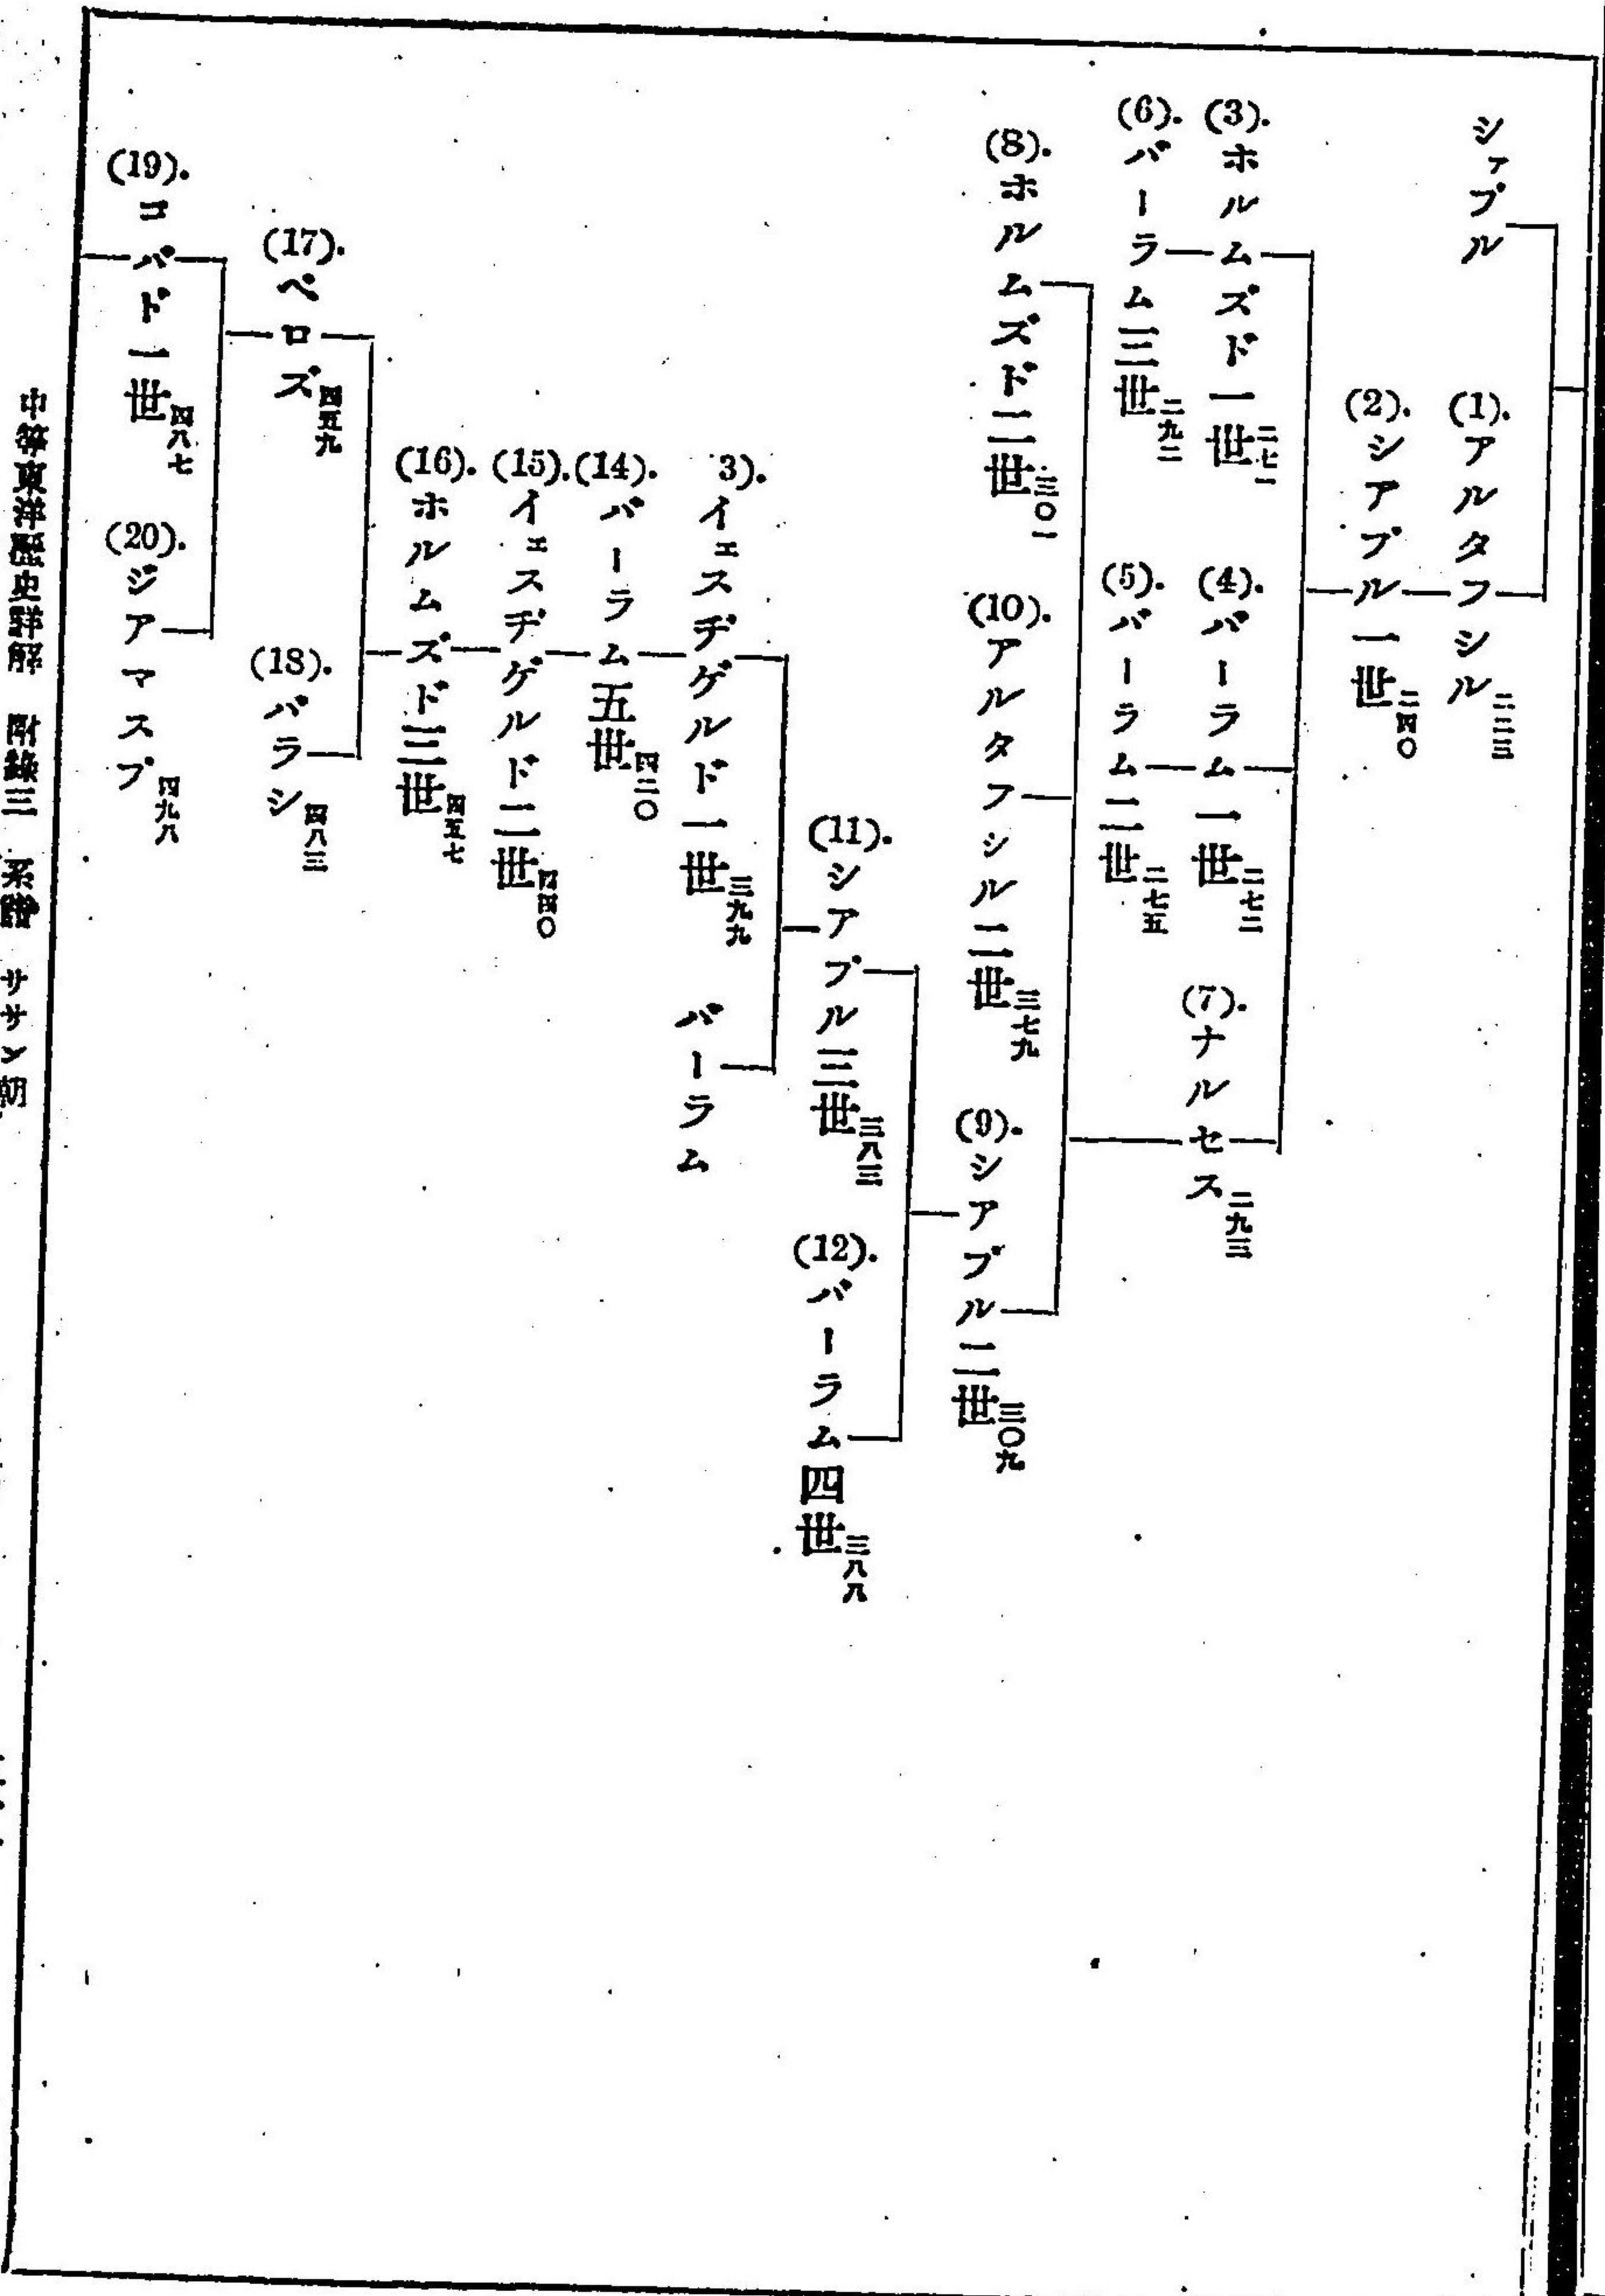 シァプル
(1). アルタフシル 二二三
(2). シアプル一世 二四〇
(3). ホルムズド一世 二七一
(4). バーラム一世 二七二
(7). ナルセス 二九三
(6). バーラム三世 二九二
(5). バーラム二世 二七五
(8). ホルムズド二世 三〇一
(10). アルタフシル二世 三七九
(9). シアプル二世 三〇九
(11). シアプル三世 三八三
(12). バーラム四世 三八八
3). イェスヂゲルド一世 三九九
バーラム
(14). バーラム五世 四二〇
(15). イェスヂゲルド二世 四四〇
(16). ホルムズド三世 四五七
(17). ペロズ 四五九
(18). バラシ 四八三
(19). コバド一世 四八七
(20). ジアマスプ 四九八
中等東洋歷史詳解 附錄三 系譜 ササン朝